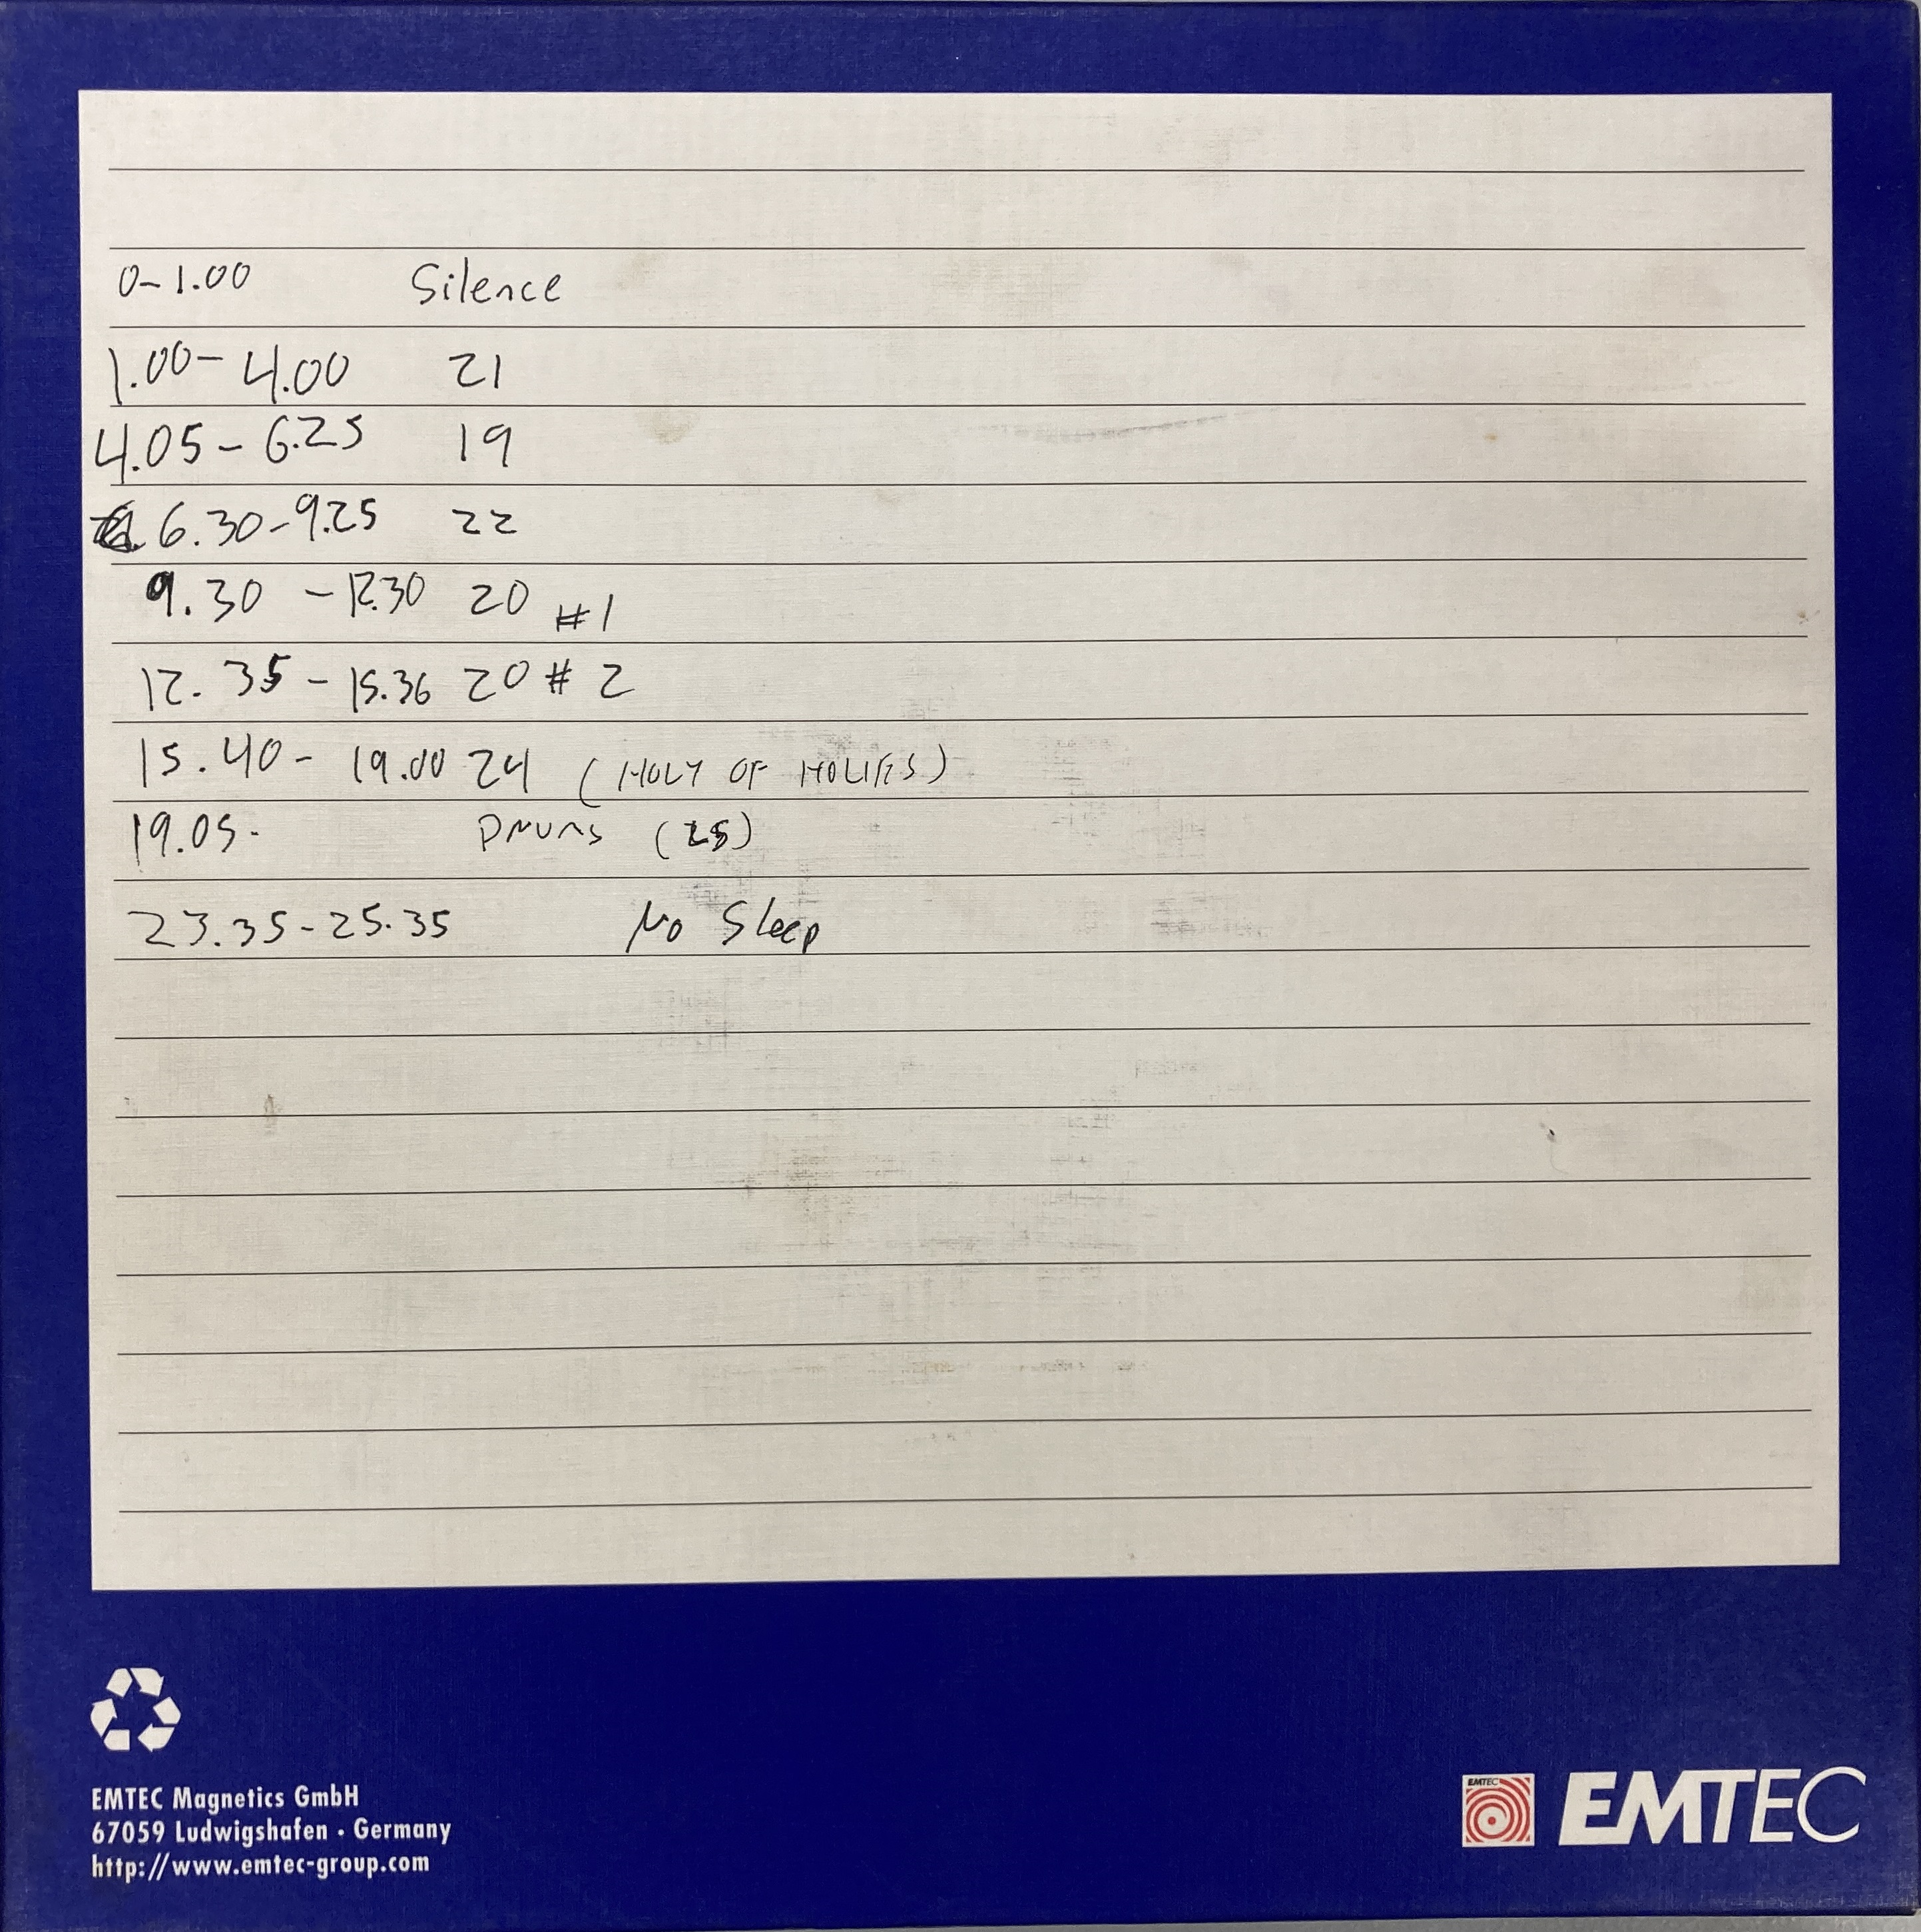 0-1.00 Silence
1.00- 4.00 21
4.05 - 6.25 19
6.30-9.25 22
9.30 - 12.30 20 #1
12. 35 - 15.36 20 # 2
15.40- 19.00 24 (HOLY OF HOLIES)
19.05- DRUMS (25)
23.35-25.35 No Sleep
EMTEC Magnetics GmbH
67059 Ludwigshafen · Germany
http://www.emtec-group.com
EMTEC
EMTEC